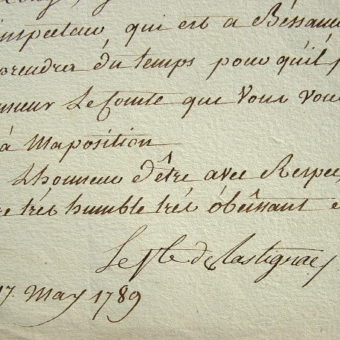 inspecteur, qui est a Bésanc
prendra du temps pour qu'il p
Le Comte que Vous vou
à Maposition
Lhonneur d'être avec Respec
re trés humble trés obéissant e
Le Vte de Lastignac
17. May 1789